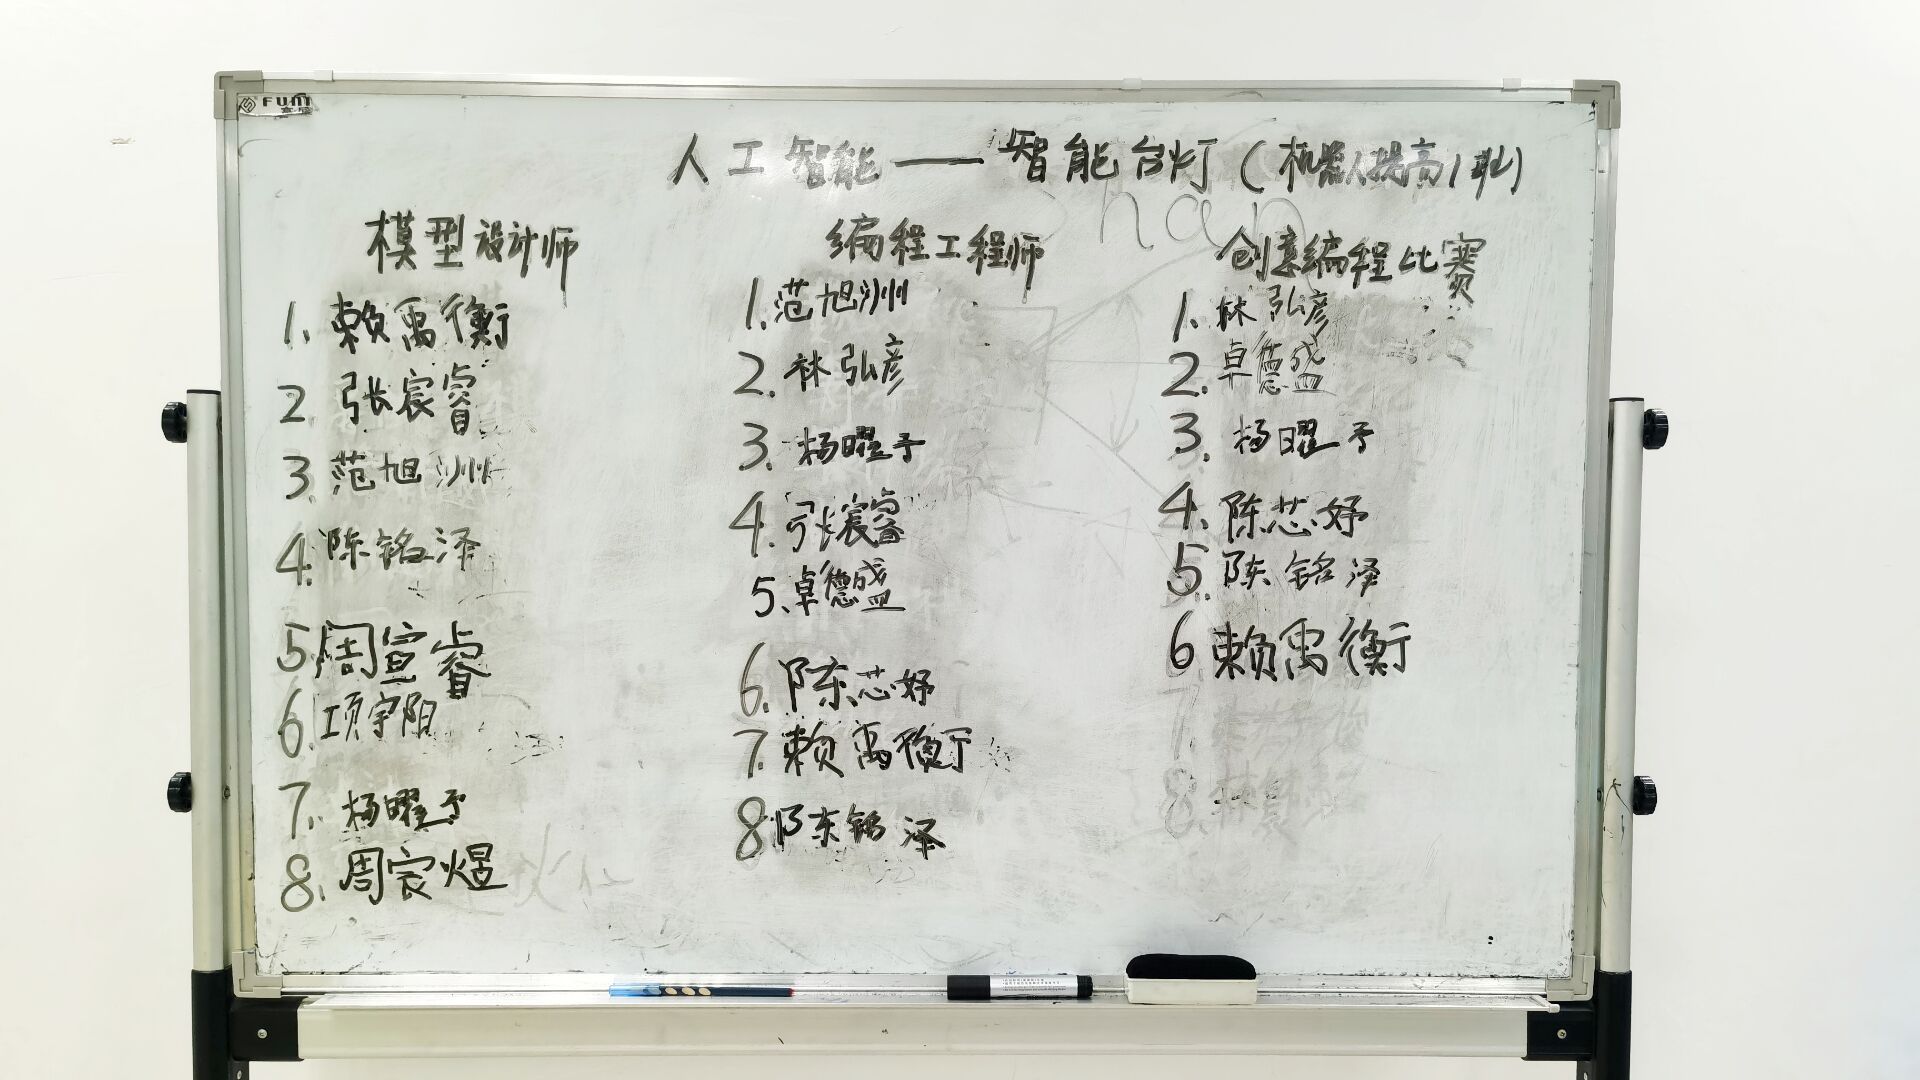 人工智能——智能台灯(机器人提高1班)
模型设计师
1.赖禹衡
2.张宸睿
3.范旭洲
4.陈铭泽
5.周宣睿
6.项宇阳
7.杨曜予
8.周宸煜
编程工程师
1.范旭洲
2.林弘彦
3.杨曜予
4.张宸睿
5.卓德盛
6.陈芯妤
7.赖禹衡
8陈铭泽
创意编程比赛
1.林弘彦
2.卓德盛
3.杨曜予
4.陈芯妤
5.陈铭泽
6赖禹衡
7.
8.